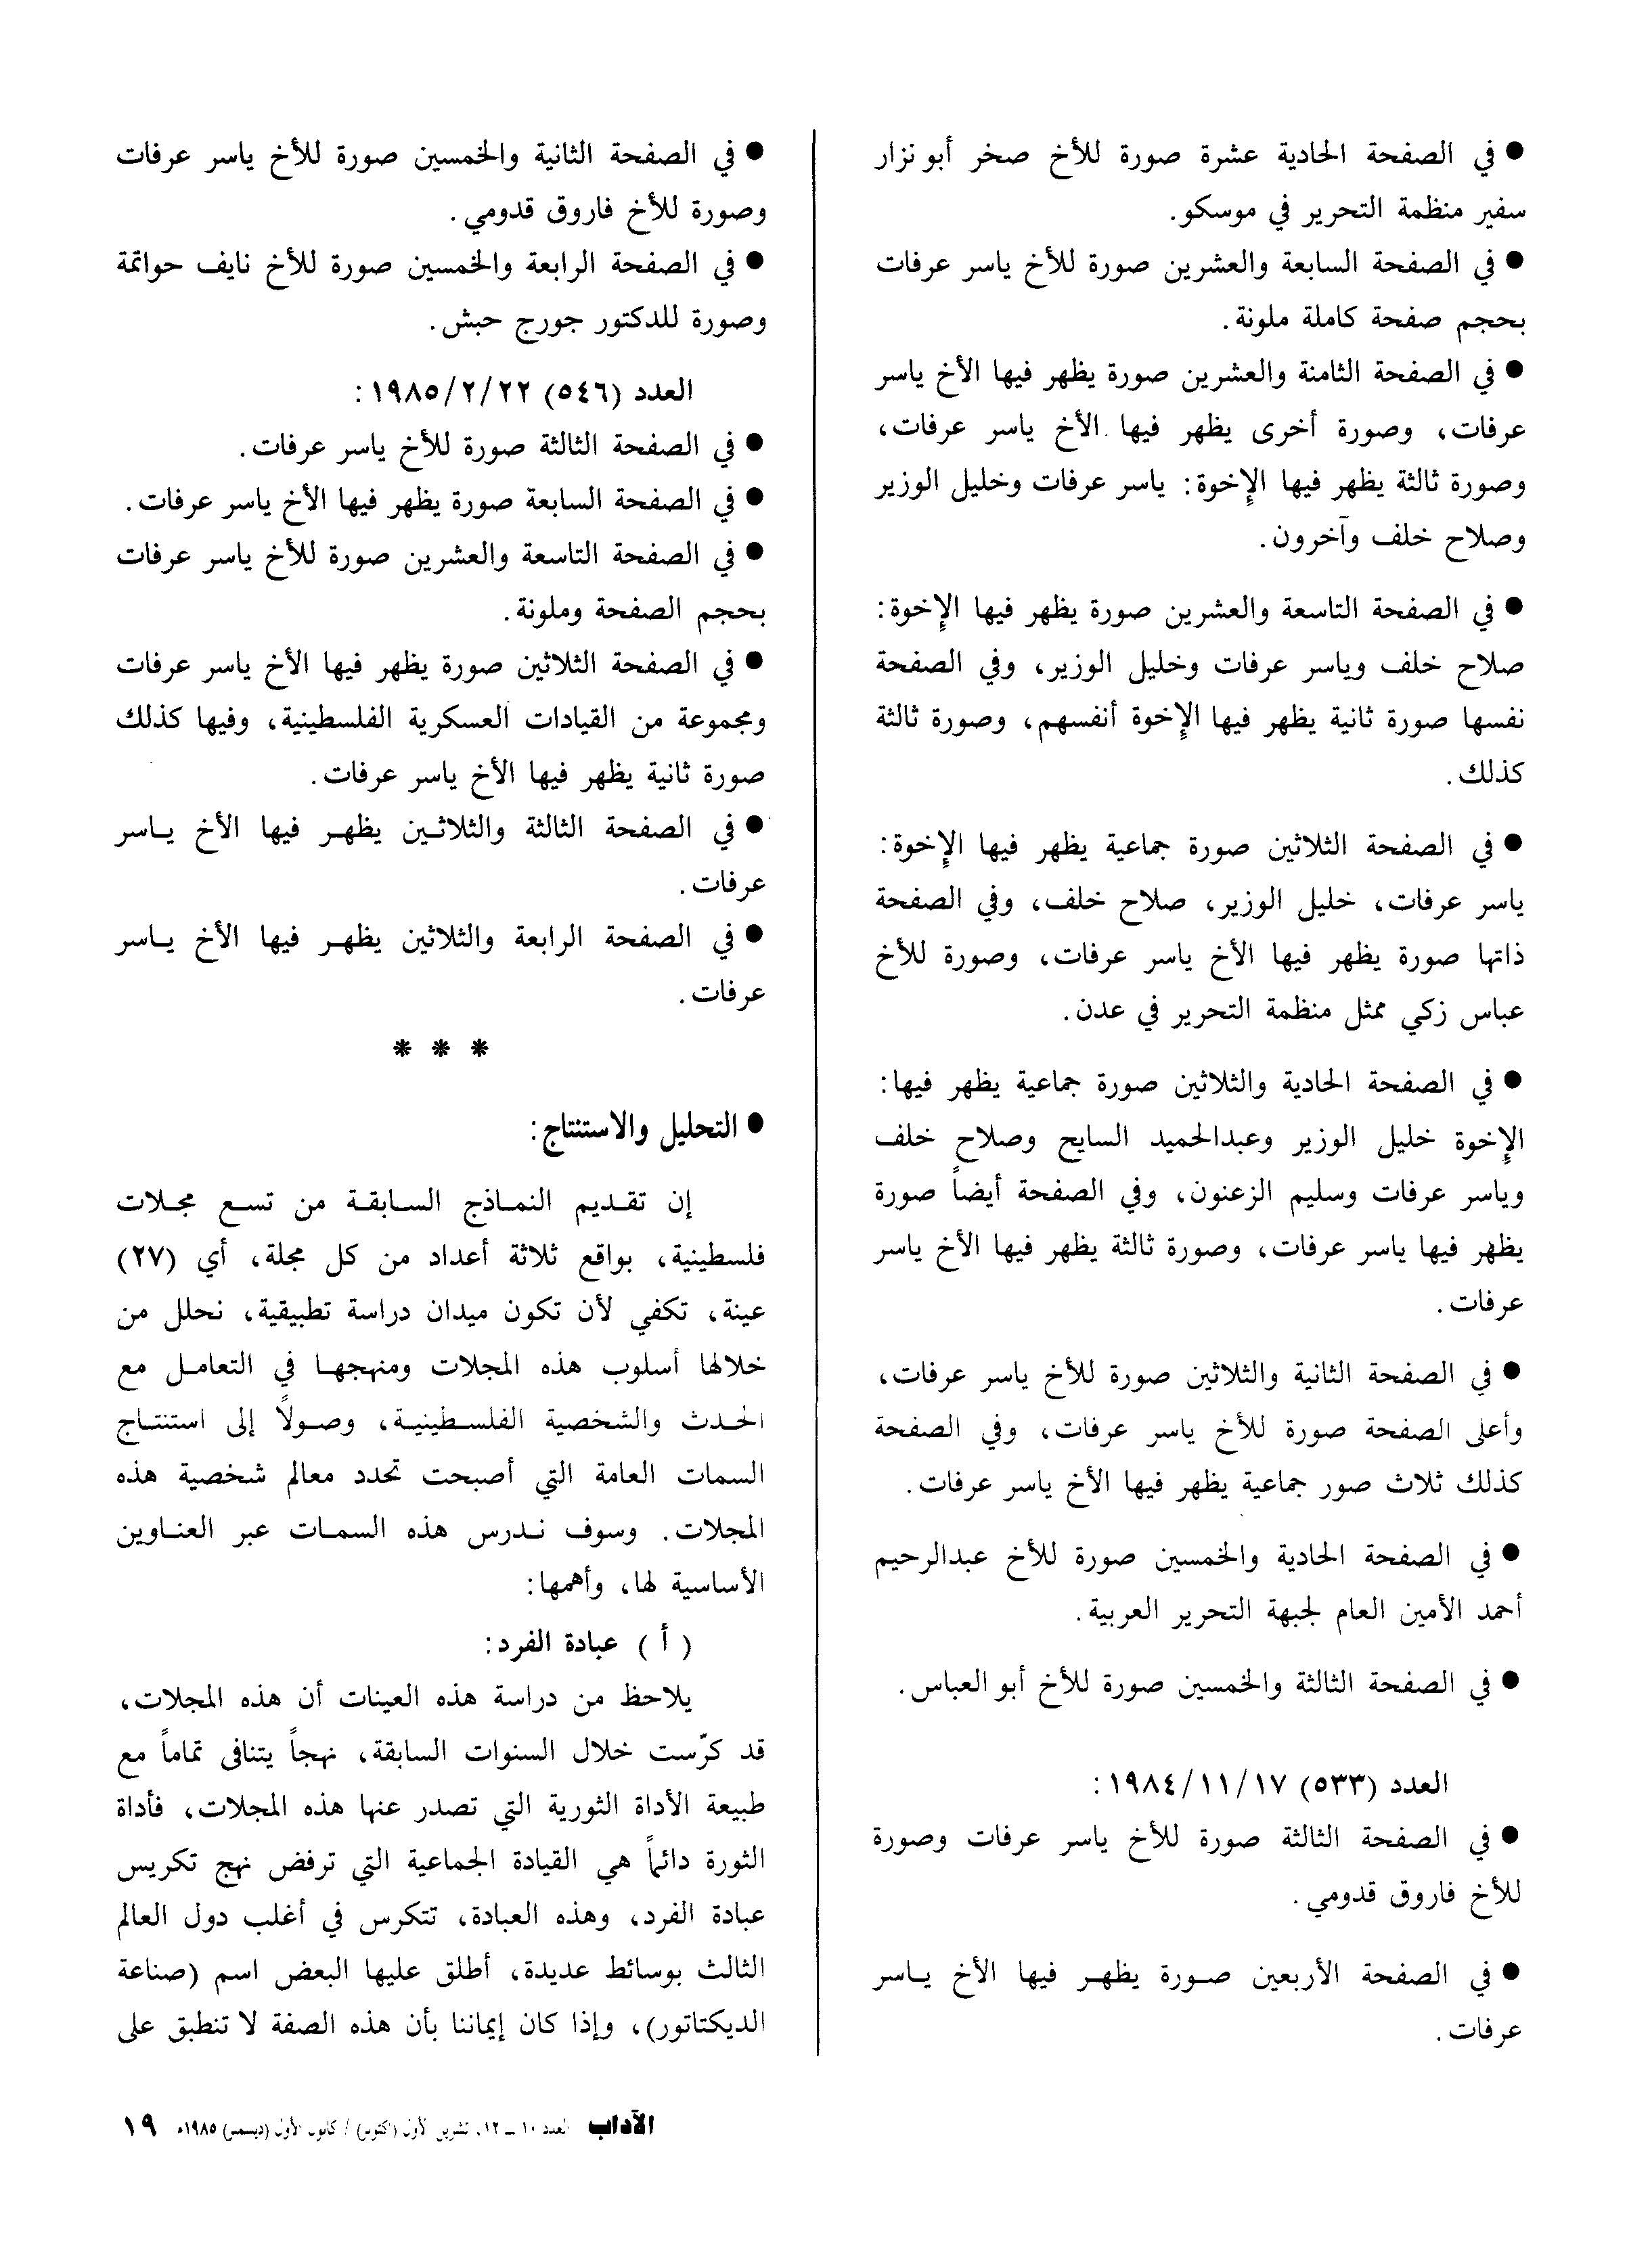 ● في الصفحة الحادية عشرة صورة للأخ صخر أبو نزار
سفير منظمة التحرير في موسكو.
● في الصفحة السابعة والعشرين صورة للأخ ياسر عرفات
بحجم صفحة كاملة ملونة.
● في الصفحة الثامنة والعشرين صورة يظهر فيها الأخ ياسر
عرفات، وصورة أخرى يظهر فيها الأخ ياسر عرفات،
وصورة ثالثة يظهر فيها الإخوة: ياسر عرفات وخليل الوزير
وصلاح خلف وآخرون.
● في الصفحة التاسعة والعشرين صورة يظهر فيها الإخوة:
صلاح خلف وياسر عرفات وخليل الوزير، وفي الصفحة
نفسها صورة ثانية يظهر فيها الإخوة أنفسهم، وصورة ثالثة
كذلك.
● في الصفحة الثلاثين صورة جماعية يظهر فيها الإخوة:
ياسر عرفات، خليل الوزير، صلاح خلف، وفي الصفحة
ذاتها صورة يظهر فيها الأخ ياسر عرفات، وصورة للأخ
عباس زكي ممثل منظمة التحرير في عدن.
● في الصفحة الحادية والثلاثين صورة جماعية يظهر فيها:
الإخوة خليل الوزير وعبدالحميد السايح وصلاح خلف
وياسر عرفات وسليم الزعنون، وفي الصفحة أيضاً صورة
يظهر فيها ياسر عرفات، وصورة ثالثة يظهر فيها الأخ ياسر
عرفات.
● في الصفحة الثانية والثلاثين صورة للأخ ياسر عرفات،
وأعلى الصفحة صورة للأخ ياسر عرفات، وفي الصفحة
كذلك ثلاث صور جماعية يظهر فيها الأخ ياسر عرفات.
● في الصفحة الحادية والخمسين صورة للأخ عبدالرحيم
أحمد الأمين العام لجبهة التحرير العربية.
● في الصفحة الثالثة والخمسين صورة للأخ أبو العباس.
العدد (٥٣٣) ١٩٨٤/١١/١٧:
● في الصفحة الثالثة صورة للأخ ياسر عرفات وصورة
للأخ فاروق قدومي.
● في الصفحة الأربعين صورة يظهر فيها الأخ ياسر
عرفات.
● في الصفحة الثانية والخمسين صورة للأخ ياسر عرفات
وصورة للأخ فاروق قدومي.
● في الصفحة الرابعة والخمسين صورة للأخ نايف حواتمة
وصورة للدكتور جورج حبش.
العدد (٥٤٦) ١٩٨٥/٢/٢٢:
● في الصفحة الثالثة صورة للأخ ياسر عرفات.
● في الصفحة السابعة صورة يظهر فيها الأخ ياسر عرفات.
● في الصفحة التاسعة والعشرين صورة للأخ ياسر عرفات
بحجم الصفحة وملونة.
● في الصفحة الثلاثين صورة يظهر فيها الأخ ياسر عرفات
ومجموعة من القيادات العسكرية الفلسطينية، وفيها كذلك
صورة ثانية يظهر فيها الأخ ياسر عرفات.
● في الصفحة الثالثة والثلاثين يظهر فيها الأخ ياسر
عرفات.
● في الصفحة الرابعة والثلاثين يظهر فيها الأخ ياسر
عرفات.
* * *
● التحليل والاستنتاج:
إن تقديم النماذج السابقة من تسع مجلات
فلسطينية، بواقع ثلاثة أعداد من كل مجلة، أي (٢٧)
عينة، تكفي لأن تكون ميدان دراسة تطبيقية، نحلل من
خلالها أسلوب هذه المجلات ومنهجها في التعامل مع
الحدث والشخصية الفلسطينية، وصولاً إلى استنتاج
السمات العامة التي أصبحت تحدد معالم شخصية هذه
المجلات. وسوف ندرس هذه السمات عبر العناوين
الأساسية لها، وأهمها:
( أ ) عبادة الفرد:
يلاحظ من دراسة هذه العينات أن هذه المجلات،
قد كرّست خلال السنوات السابقة، نهجاً يتنافى تماماً مع
طبيعة الأداة الثورية التي تصدر عنها هذه المجلات، فأداة
الثورة دائماً هي القيادة الجماعية التي ترفض نهج تكريس
عبادة الفرد، وهذه العبادة، تتكرس في أغلب دول العالم
الثالث بوسائط عديدة، أطلق عليها البعض اسم (صناعة
الديكتاتور)، وإذا كان إيماننا بأن هذه الصفة لا تنطبق على
الآداب العدد ١٠ ــ ١٢، تشرين الأول (أكتوبر) / كانون الأول (ديسمبر) ١٩٨٥م ١٩